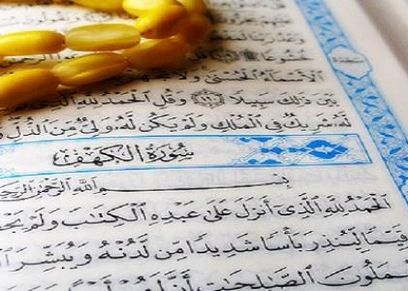 الأسماء الحسنى ولا
بين ذلك سبيلا وقل الحمد لله الذي
له شريك في الملك ولم يكن له ولي من الذل
سورة الكهف
بسم الله الرحمن الرحيم
الحمد لله الذي أنزل على عبده الكتاب ولم يجعل
قيما لينذر بأسا شديدا من لدنه ويبشر
يعملون الصالحات أن لهم